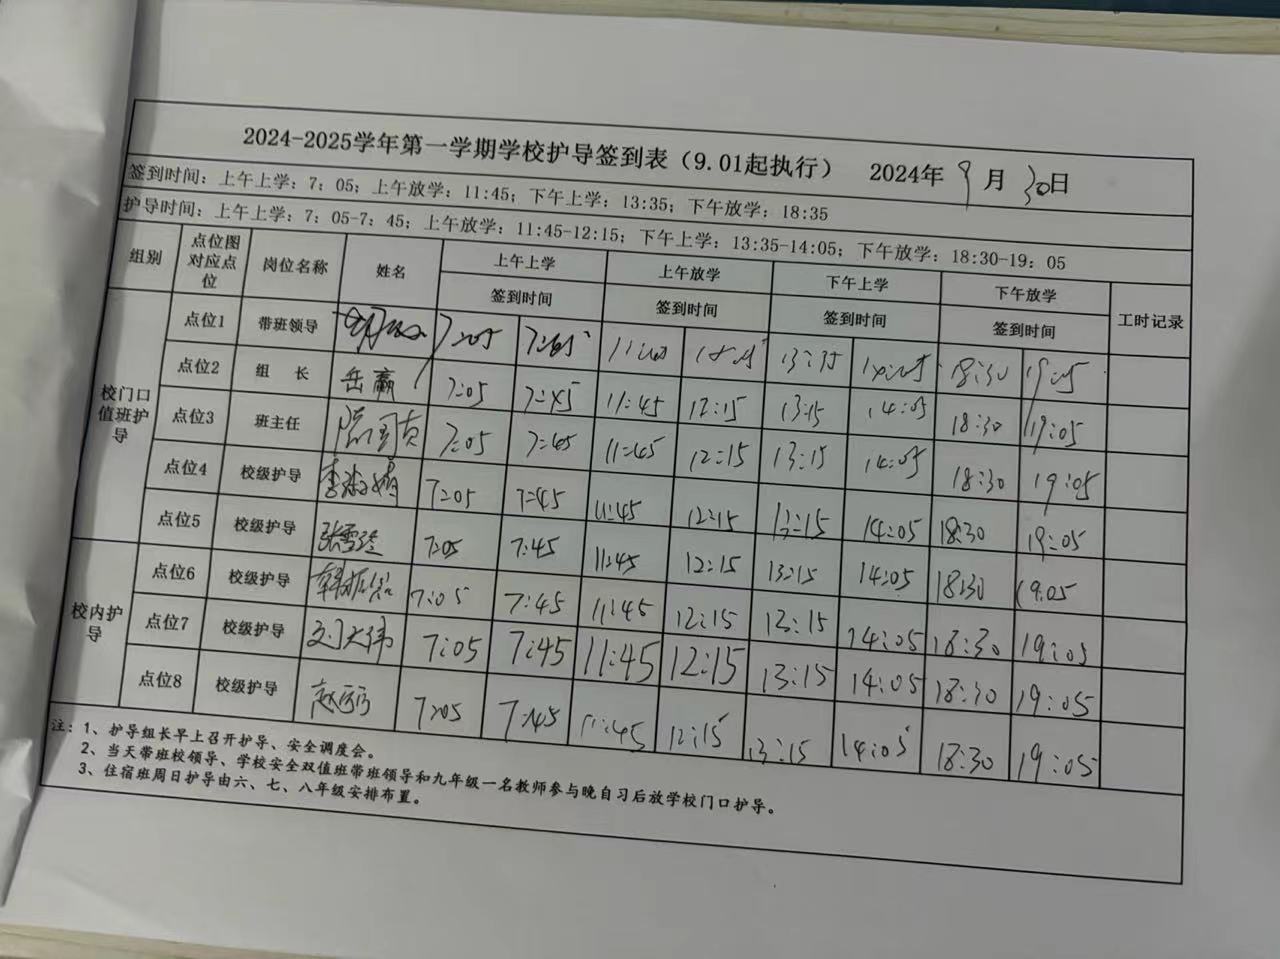 2024-2025学年第一学期学校护导签到表（9.01起执行） 2024年 9月 30日
签到时间：上午上学：7：05；上午放学：11:45；下午上学：13:35；下午放学：18:35
护导时间：上午上学：7：05-7：45；上午放学：11:45-12:15；下午上学：13:35-14:05；下午放学：18:30-19：05
组别 点位图对应点位 岗位名称 姓名 上午上学 上午放学 下午上学 下午放学 工时记录
签到时间 签到时间 签到时间 签到时间
校门口值班护导
点位1 带班领导 7:05 13:35 18:30 19:05
点位2 组 长 岳赢 7:05 7:45 11:45 12:15 13:15 14:05 18:30 19:05
点位3 班主任 7:05 7:45 11:45 12:15 13:15 14:05 18:30 19:05
点位4 校级护导 7:05 7:45 11:45 12:15 13:15 14:05 18:30 19:05
点位5 校级护导 张雪玲 7:05 7:45 11:45 12:15 13:15 14:05 18:30 19:05
校内护导
点位6 校级护导 7:05 7:45 11:45 12:15 13:15 14:05 18:30 19:05
点位7 校级护导 刘大伟 7:05 7:45 11:45 12:15 13:15 14:05 18:30 19:05
点位8 校级护导 7:05 7:45 11:45 12:15 13:15 14:05 18:30 19:05
注：1、护导组长早上召开护导、安全调度会。
2、当天带班校领导、学校安全双值班带班领导和九年级一名教师参与晚自习后放学校门口护导。
3、住宿班周日护导由六、七、八年级安排布置。